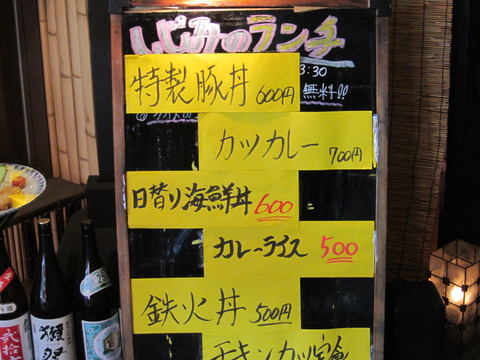 しじみのランチ
3:30
無料!!
特製豚丼 600円
カツカレー 700円
日替り海鮮丼 600
カレーライス 500
鉄火丼 500円
チキンカツ定食
獺祭